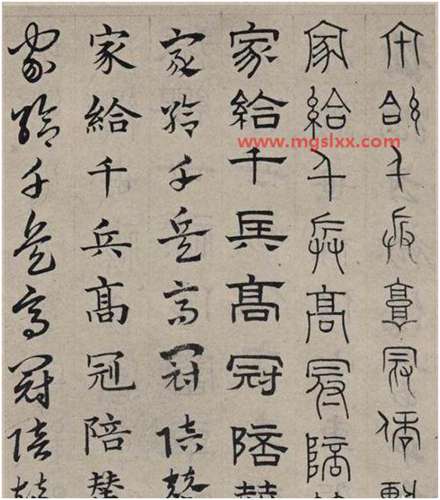 家給千兵高冠陪
家給千兵髙冠陪
家給千兵髙冠陪
家給千兵高冠陪
家給千兵髙冠陪
家給千兵高冠陪
www.mgslxx.com